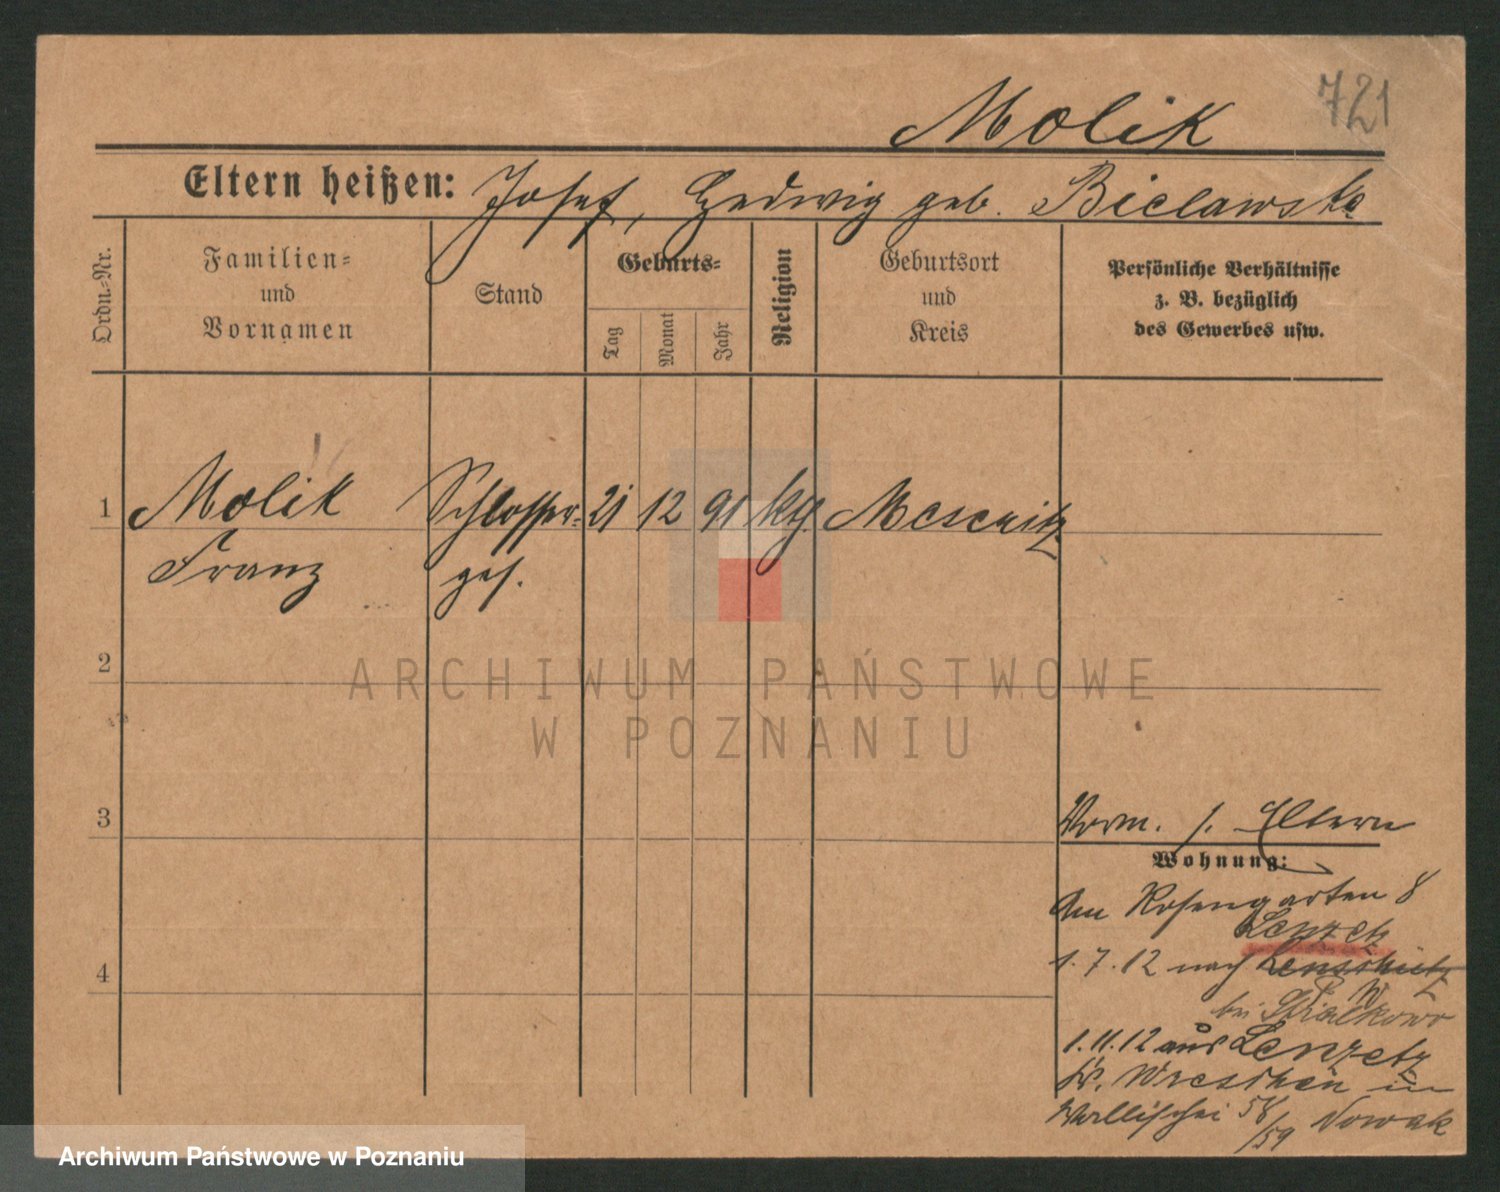 721
Molik
Eltern heißen: Josef, Hedwig geb. Bielawska
Ordn.-Nr.
Familien-
und
Vornamen
Stand
Geburts-
Tag
Monat
Jahr
Religion
Geburtsort
und
Kreis
Persönliche Verhältnisse
z. B. bezüglich
des Gewerbes usw.
1 Molik Schlosser- 21 12 91 kg. Meseritz
Franz ges.
2
ARCHIWUM PAŃSTWOWE
W POZNANIU
3
Vorm. s. Eltern
Wohnung:
Am Rosengarten 8
Lenzetz
1.7.12 nach
4
bei
1.11.12 aus Lenzetz
Kr. Wreschen in
Wallischei 58/59 Nowak
Archiwum Państwowe w Poznaniu